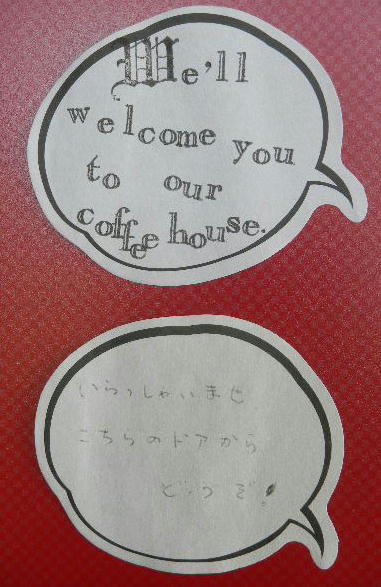 We'll
welcome you
to our
coffee house.
いらっしゃいませ
こちらのドアから
どうぞ!